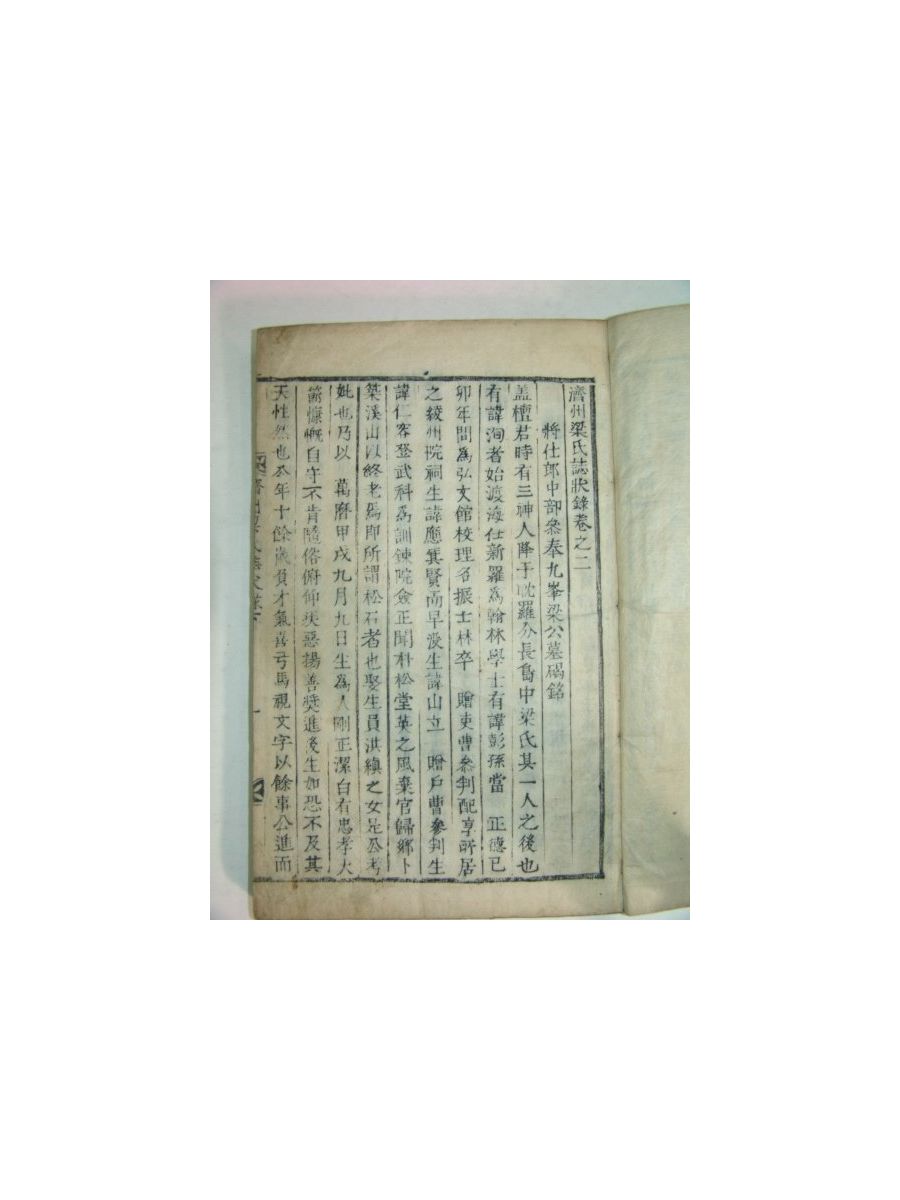 濟州梁氏誌狀錄卷之二
將仕郎中部叅奉九峯梁公墓碣銘
盖檀君時有三神人降于耽羅分長島中梁氏其一人之後也
有諱洵者始渡海仕新羅爲翰林學士有諱彭孫當 正德已
卯年間爲弘文館校理名振士林卒 贈吏曹叅判配享所居
之綾州院祠生諱應箕賢而早沒生諱山立 贈戶曹參判生
諱仁容登武科爲訓鍊院僉正聞朴松堂英之風棄官歸鄉卜
築溪山以終老焉即所謂松石者也娶生員洪縝之女是公考
妣也乃以 萬曆甲戌九月九日生爲人剛正潔白有忠孝大
節慷慨自守不肯隨俗俯仰疾惡揚善奬進後生如恐不及其
天性然也公年十餘歲負才氣喜弓馬視文字以餘事公進而